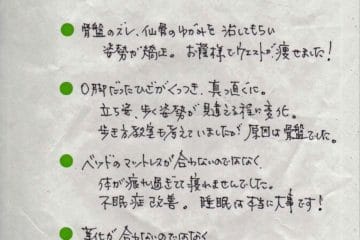 骨盤のズレ、仙骨のゆがみを治してもらい
姿勢が矯正。お陰様でウエストが痩せました!
O脚だったひざがくっつき、真っ直ぐに。
立ち姿、歩く姿勢が見違える程に変化。
歩き方教室も考えていましたが原因は骨盤でした。
ベッドのマットレスが合わないのではなく
体が疲れ過ぎてて寝れませんでした。
不眠症改善。睡眠は本当に大事です!
革化が合わないのではなく